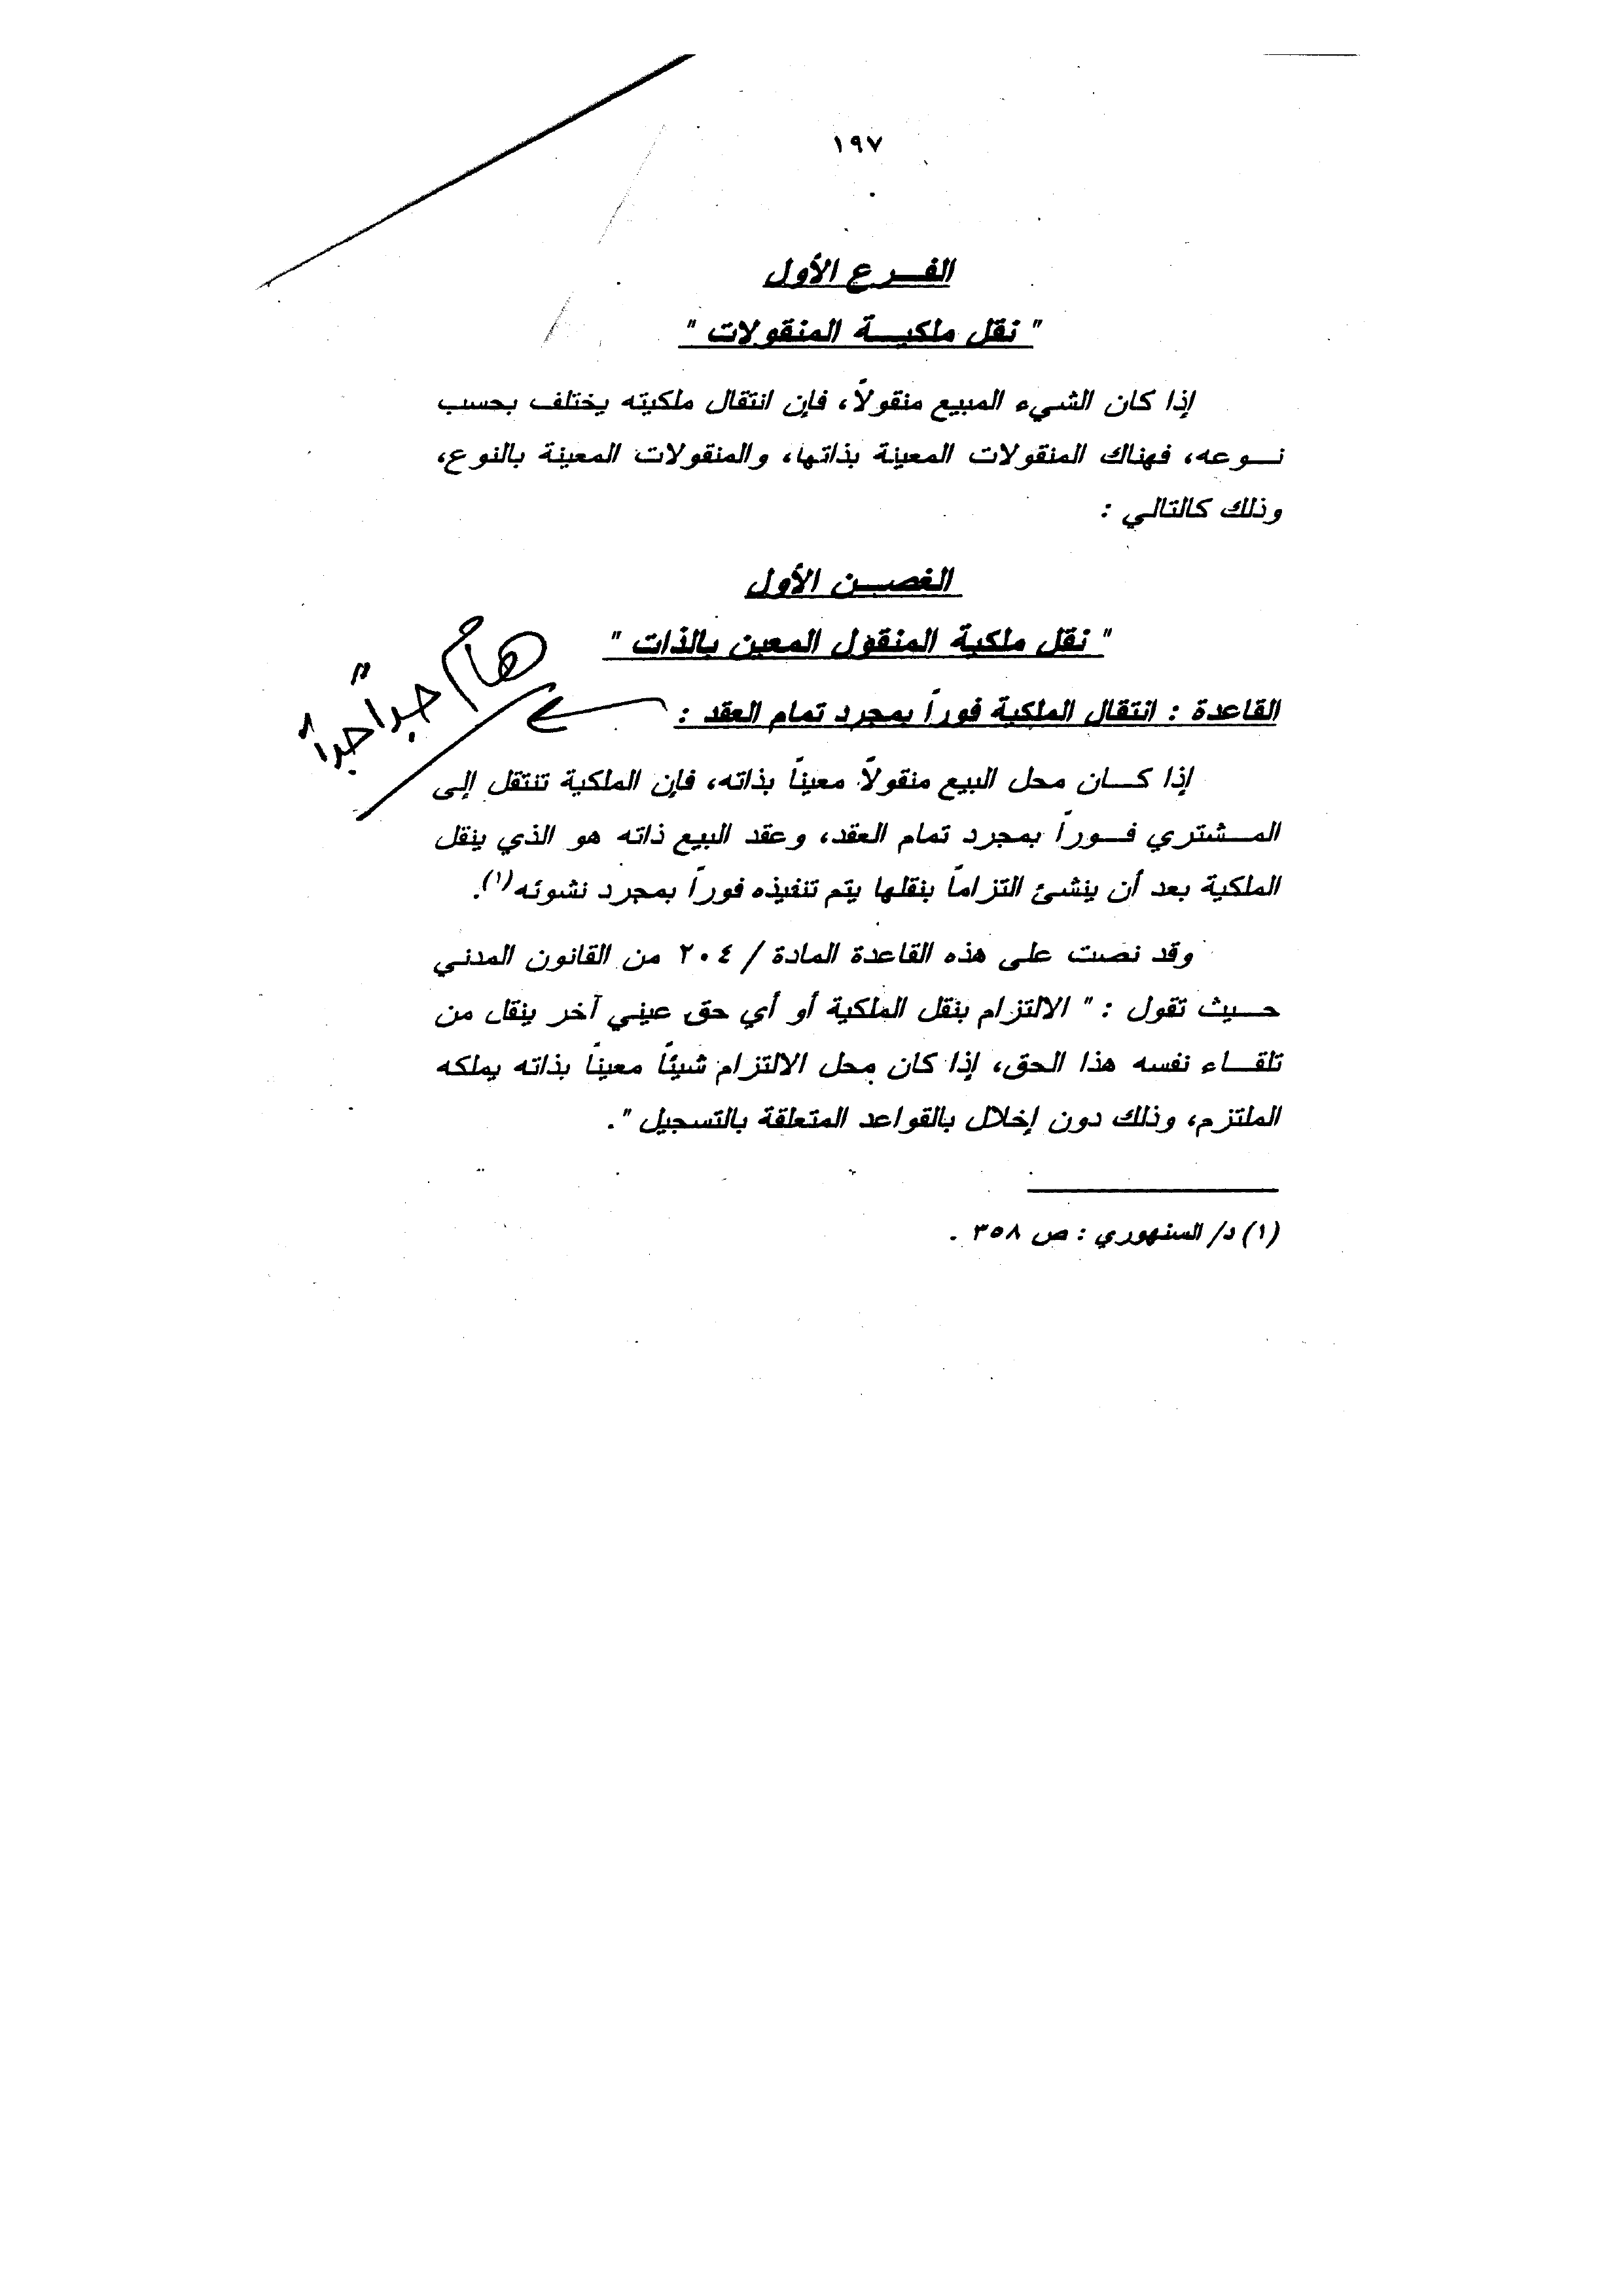 ١٩٧
الفـــرع الأول
" نقل ملكيـــة المنقولات "
إذا كان الشيء المبيع منقولاً، فإن انتقال ملكيته يختلف بحسب
نـــوعه، فهناك المنقولات المعينة بذاتها، والمنقولات المعينة بالنوع،
وذلك كالتالي :
الغصـــن الأول
" نقل ملكية المنقول المعين بالذات "
القاعدة : انتقال الملكية فوراً بمجرد تمام العقد :
هام جداً جداً
إذا كـــان محل البيع منقولاً معيناً بذاته، فإن الملكية تنتقل إلى
المـــشتري فـــوراً بمجرد تمام العقد، وعقد البيع ذاته هو الذي ينقل
الملكية بعد أن ينشئ التزاماً بنقلها يتم تنفيذه فوراً بمجرد نشوئه(١).
وقد نصت على هذه القاعدة المادة / ٢٠٤ من القانون المدني
حـــيث تقول : " الالتزام بنقل الملكية أو أي حق عيني آخر ينقل من
تلقـــاء نفسه هذا الحق، إذا كان محل الالتزام شيئاً معيناً بذاته يملكه
الملتزم، وذلك دون إخلال بالقواعد المتعلقة بالتسجيل ".
(١) د/ السنهوري : ص ٣٥٨ .